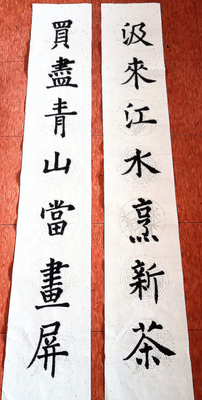 汲來江水烹新茶
買盡青山當畫屏